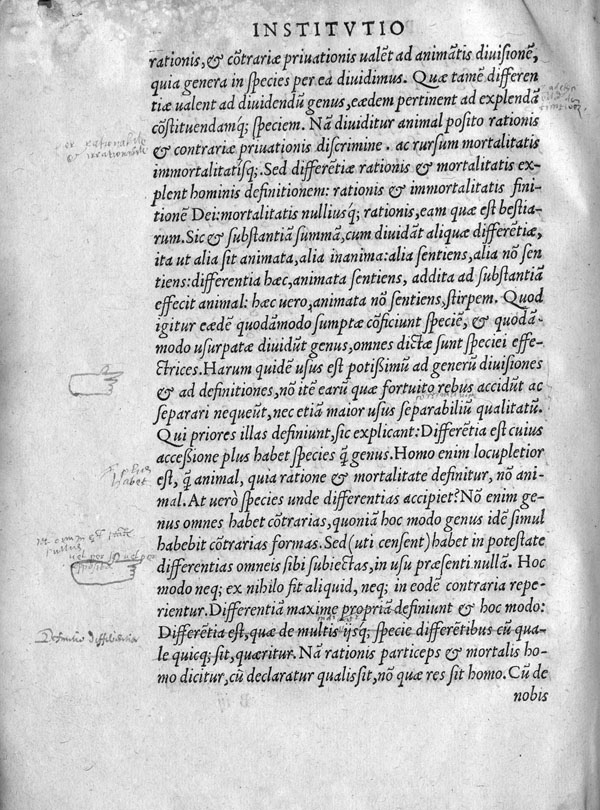 INSTITVTIO
rationis, & cõtrariæ priuationis ualẽt ad animãtis diuisionẽ,
quia genera in species per ea diuidimus. Quæ tamẽ differen
tiæ ualent ad diuidendũ genus, eædem pertinent ad explendã
cõstituendamq́; speciem. Nã diuiditur animal posito rationis
& contrariæ priuationis discrimine . ac rursum mortalitatis
immortalitatisq́;. Sed differẽtiæ rationis & mortalitatis ex-
plent hominis definitionem: rationis & immortalitatis fini-
tionẽ Dei: mortalitatis nulliusq́; rationis, eam quæ est bestia-
rum. Sic & substantiã summã, cum diuidãt aliquæ differẽtiæ,
ita ut alia sit animata, alia inanima: alia sentiens, alia nõ sen
tiens: differentia hæc, animata sentiens, addita ad substantiã
effecit animal: hæc uero, animata nõ sentiens, stirpem. Quod
igitur eædẽ quodãmodo sumptæ cõficiunt speciẽ, & quodã-
modo usurpatæ diuidũt genus, omnes dictæ sunt speciei effe-
ctrices. Harum quidẽ usus est potißimũ ad generũ diuisiones
& ad definitiones, nõ itẽ earũ quæ fortuito rebus accidũt ac
separari nequeũt, nec etiã maior usus separabiliũ qualitatũ.
Qui priores illas definiunt, sic explicant: Differẽtia est cuius
acceßione plus habet species q̃ genus. Homo enim locupletior
est, q̃ animal, quia ratione & mortalitate definitur, nõ ani-
mal. At uerò species unde differentias accipiet? Nõ enim ge-
nus omnes habet cõtrarias, quoniã hoc modo genus idẽ simul
habebit cõtrarias formas. Sed (uti censent) habet in potestate
differentias omneis sibi subiectas, in usu præsenti nullã. Hoc
modo neq; ex nihilo fit aliquid, neq; in eodẽ contraria repe-
rientur. Differentiã maxime propriã definiunt & hoc modo:
Differẽtia est, quæ de multis ijsq; specie differẽtibus cũ qua-
le quicq; sit, quæritur. Nã rationis particeps & mortalis ho-
mo dicitur, cũ declaratur qualis sit, nõ quæ res sit homo. Cũ de
nobis
plus
habet